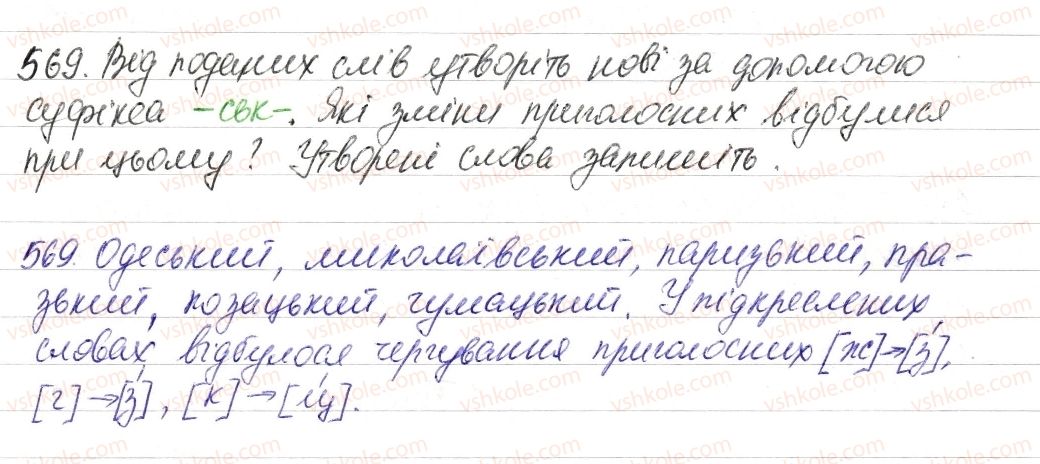 569. Від поданих слів утворіть нові за допомогою
суфікса -ськ-. Які зміни приголосних відбулися
при цьому? Утворені слова запишіть.
569. Одеський, миколаївський, паризький, пра-
зький, козацький, чумацький. У підкреслених
словах відбулося чергування приголосних [ж]→[з́],
[г]→[з́], [к]→[ц́].